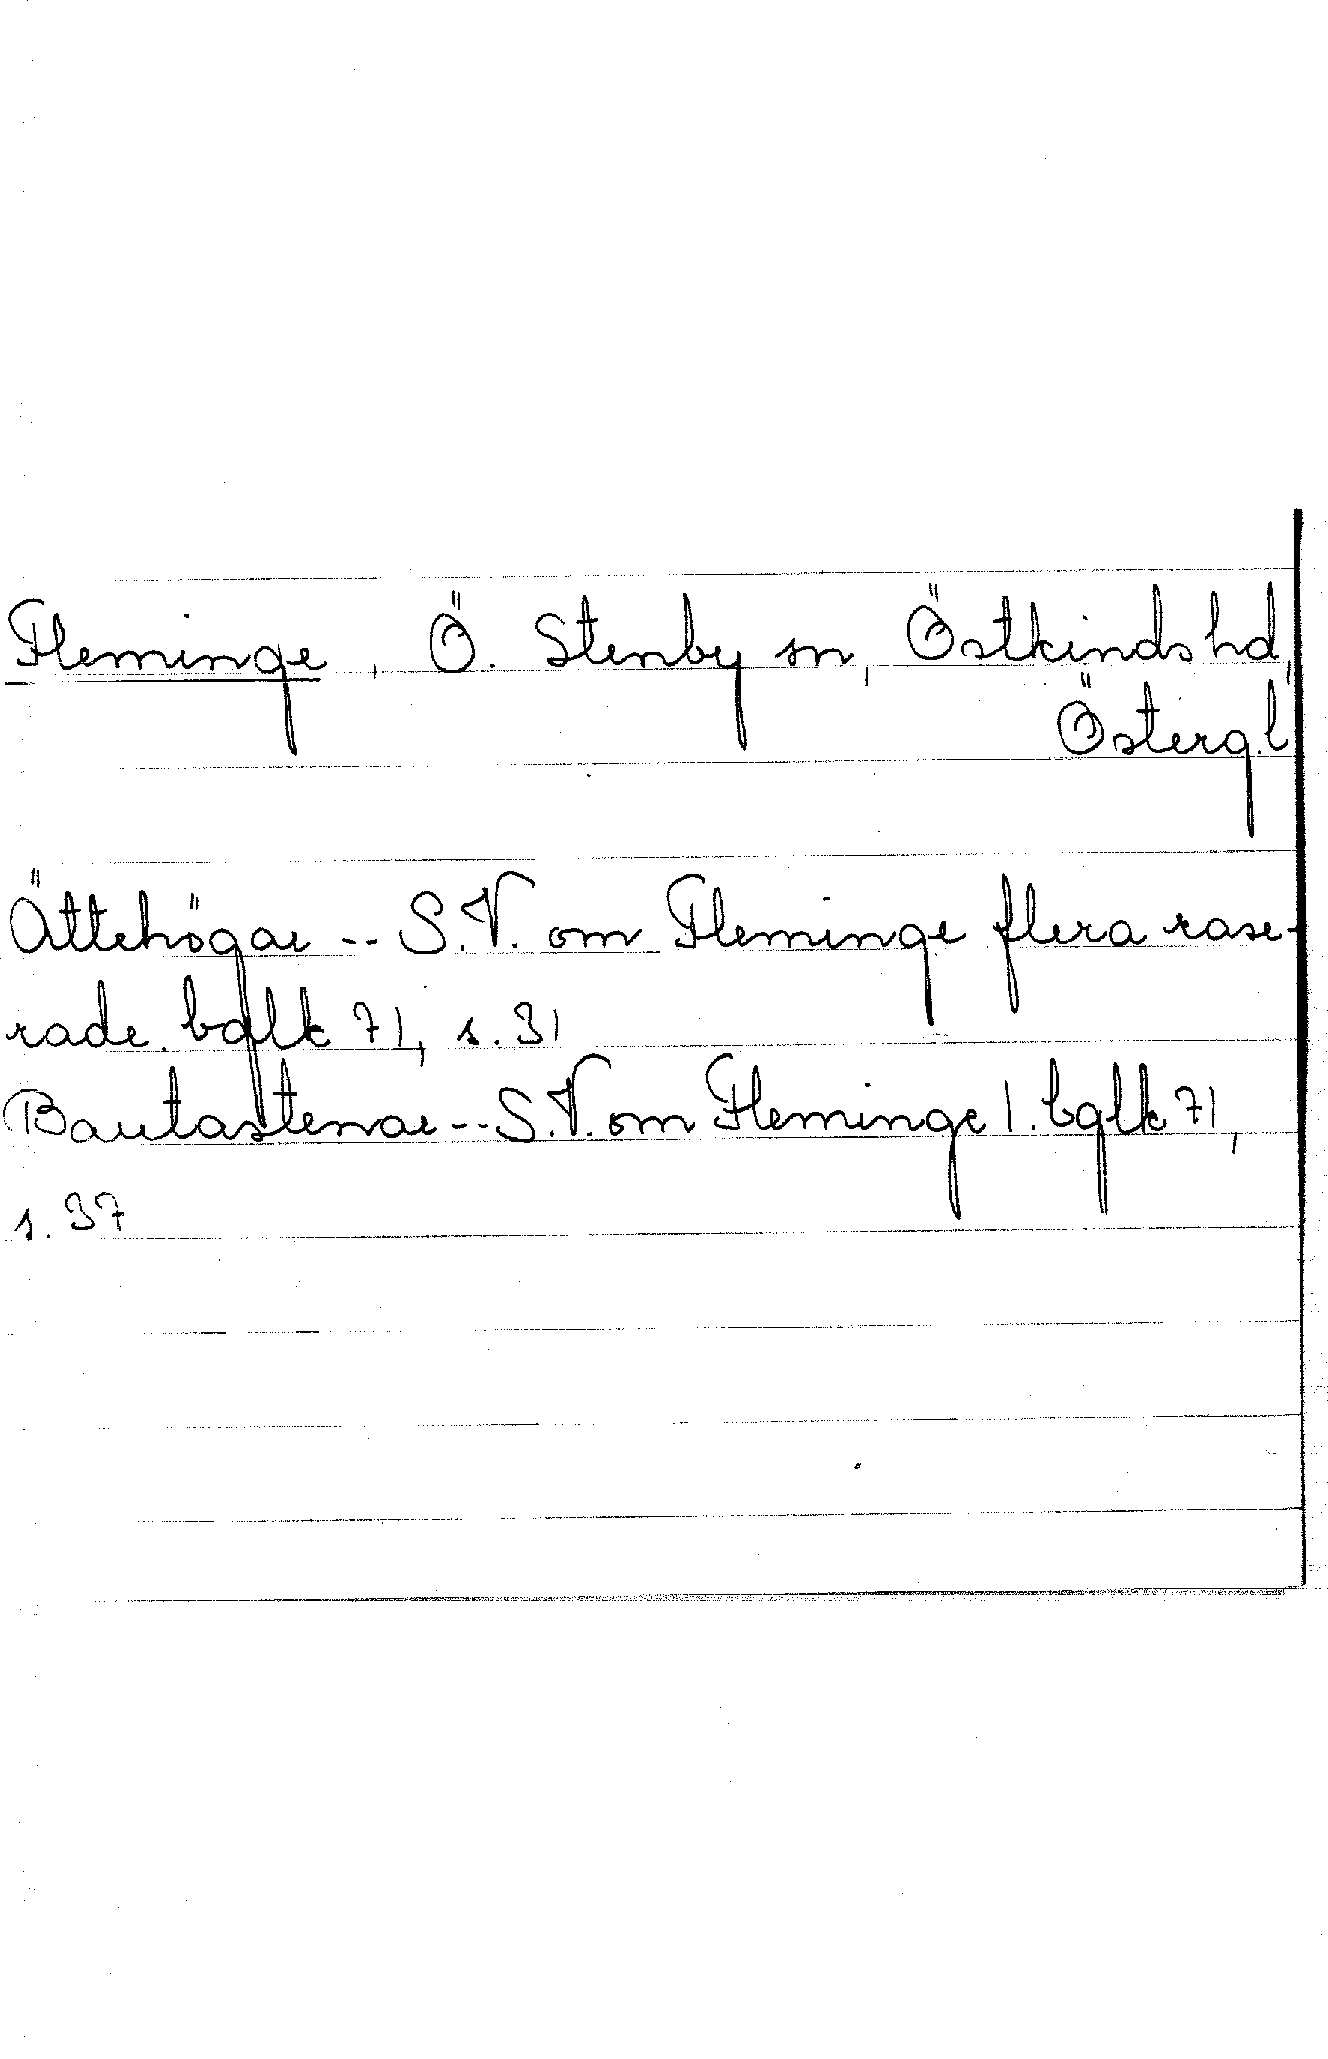 Fleminge, Ö. Stenby sn, Östkinds hd,
Östergl
Ättehögar -- S.V. om Fleminge flera rase-
rade. bglk 71, s. 31
Bautastenar -- S.V. om Fleminge 1. bglk 71,
s. 37